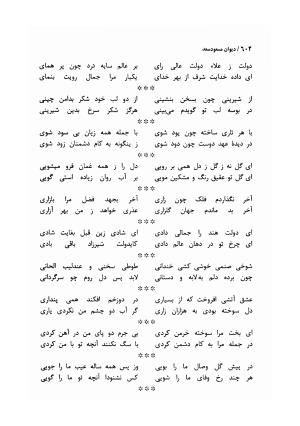 ۶۰۴ / دیوان مسعودسعد
دولت ز علاء دولت عالی رای بر عالم سایه زد چون پر همای
ای داده خدایت شرف از بهر خدای یکبار مرا جمال رویت بنمای
***
از شیرینی چون بسخن بنشینی از دو لب خود شکر بدامن چینی
در بوسه لب تو گویدم می‌بینی هرگز شکر سرخ بدین شیرینی
***
با هر تاری ساخته چون پود شوی با جمله همه زیان بی سود شوی
در دیدهٔ عهد دوست چون دود شوی ز ینگونه به کام دشمنان زود شوی
***
ای گل نه ز گل ز دل همی بر رویی دل را ز همه غمان فرو میشویی
ای گل تو عقیق رنگ و مشکین مویی بر آب روان زیاده استی گویی
***
آخر نگذاردم فلک چون زاری آخر بجهد فضل مرا بازاری
آخر بد ماندم جهان گذاری عذری خواهد ز من بهر آزاری
***
ای دولت هند را جمالی دادی ای شادی زین قبل بغایت شادی
ای چرخ تو در دهان عالم دادی کایدولت شیرزاد باقی بادی
***
شوخی صنمی خوشی کشی خندانی طوطی سخنی و عندلیب الحانی
چون برده دلم به‌لابه و دستانی در ده سردم چو گوی سرگردانی
***
عشق آتشی افروخت که از بسیاری در دوزخم افکند همی پنداری
دل سوخته بودی به هزاران زاری گر آب دو چشم من نکردی یاری
***
ای بخت مرا سوخته خرمن کردی بی جرم دو پای من در آهن کردی
در جمله مرا به کام دشمن کردی با سگ نکنند آنچه تو با من کردی
***
در پیش گل وصال ما را بویی وز پس همه ساله عیب ما را جویی
هر چند رخ وفای ما را شویی کس نشنود آنچه تو ما را گویی
***